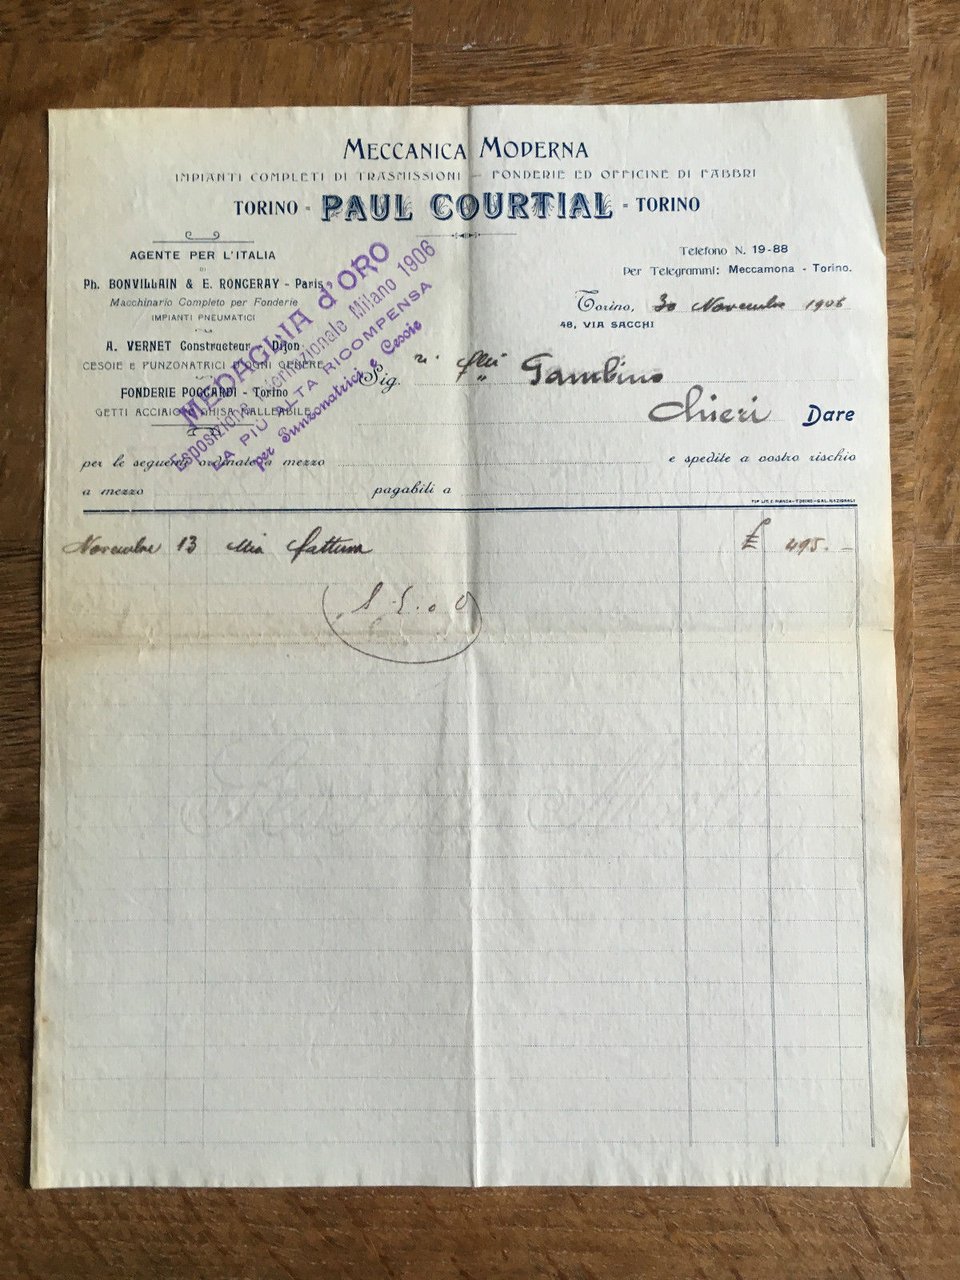 MECCANICA MODERNA
IMPIANTI COMPLETI DI TRASMISSIONI – FONDERIE ED OFFICINE DI FABBRI
TORINO - PAUL COURTIAL - TORINO
AGENTE PER L'ITALIA
DI
Ph. BONVILLAIN & E. RONCERAY - Paris
Macchinario Completo per Fonderie
IMPIANTI PNEUMATICI
A. VERNET Constructeur - Dijon
CESOIE E PUNZONATRICI D'OGNI GENERE
FONDERIE POCCARDI - Torino
GETTI ACCIAIO E GHISA MALLEABILE
MEDAGLIA d'ORO
Esposizione Internazionale Milano 1906
LA PIÙ ALTA RICOMPENSA
per Punzonatrici e Cesoie
Telefono N. 19-88
Per Telegrammi: Meccamona - Torino.
Torino, 30 Novembre 1906
48, VIA SACCHI
Sig.ri Flli Gambino
Chieri Dare
per le seguenti ordinate a mezzo e spedite a vostro rischio
a mezzo pagabili a
TIP. LIT. E. MARCA - TORINO - GAL. NAZIONALE
Novembre 13 Mia fattura £ 495.–
S. E. o O